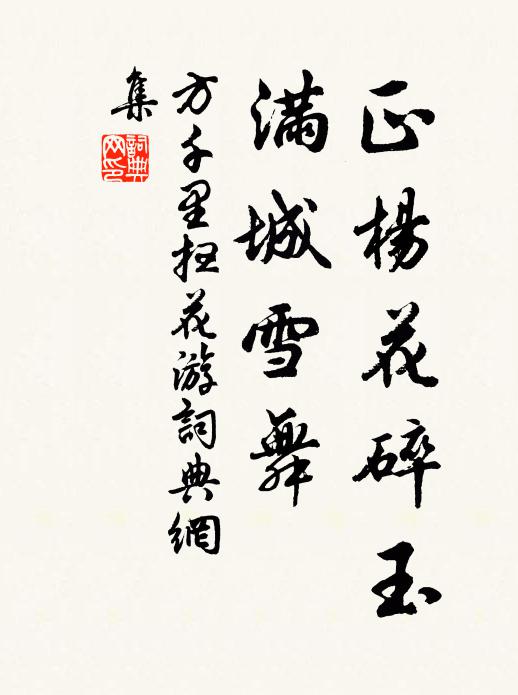 正楊花碎玉
滿城雪舞
方千里掃花游詞典網
集
詞典網印